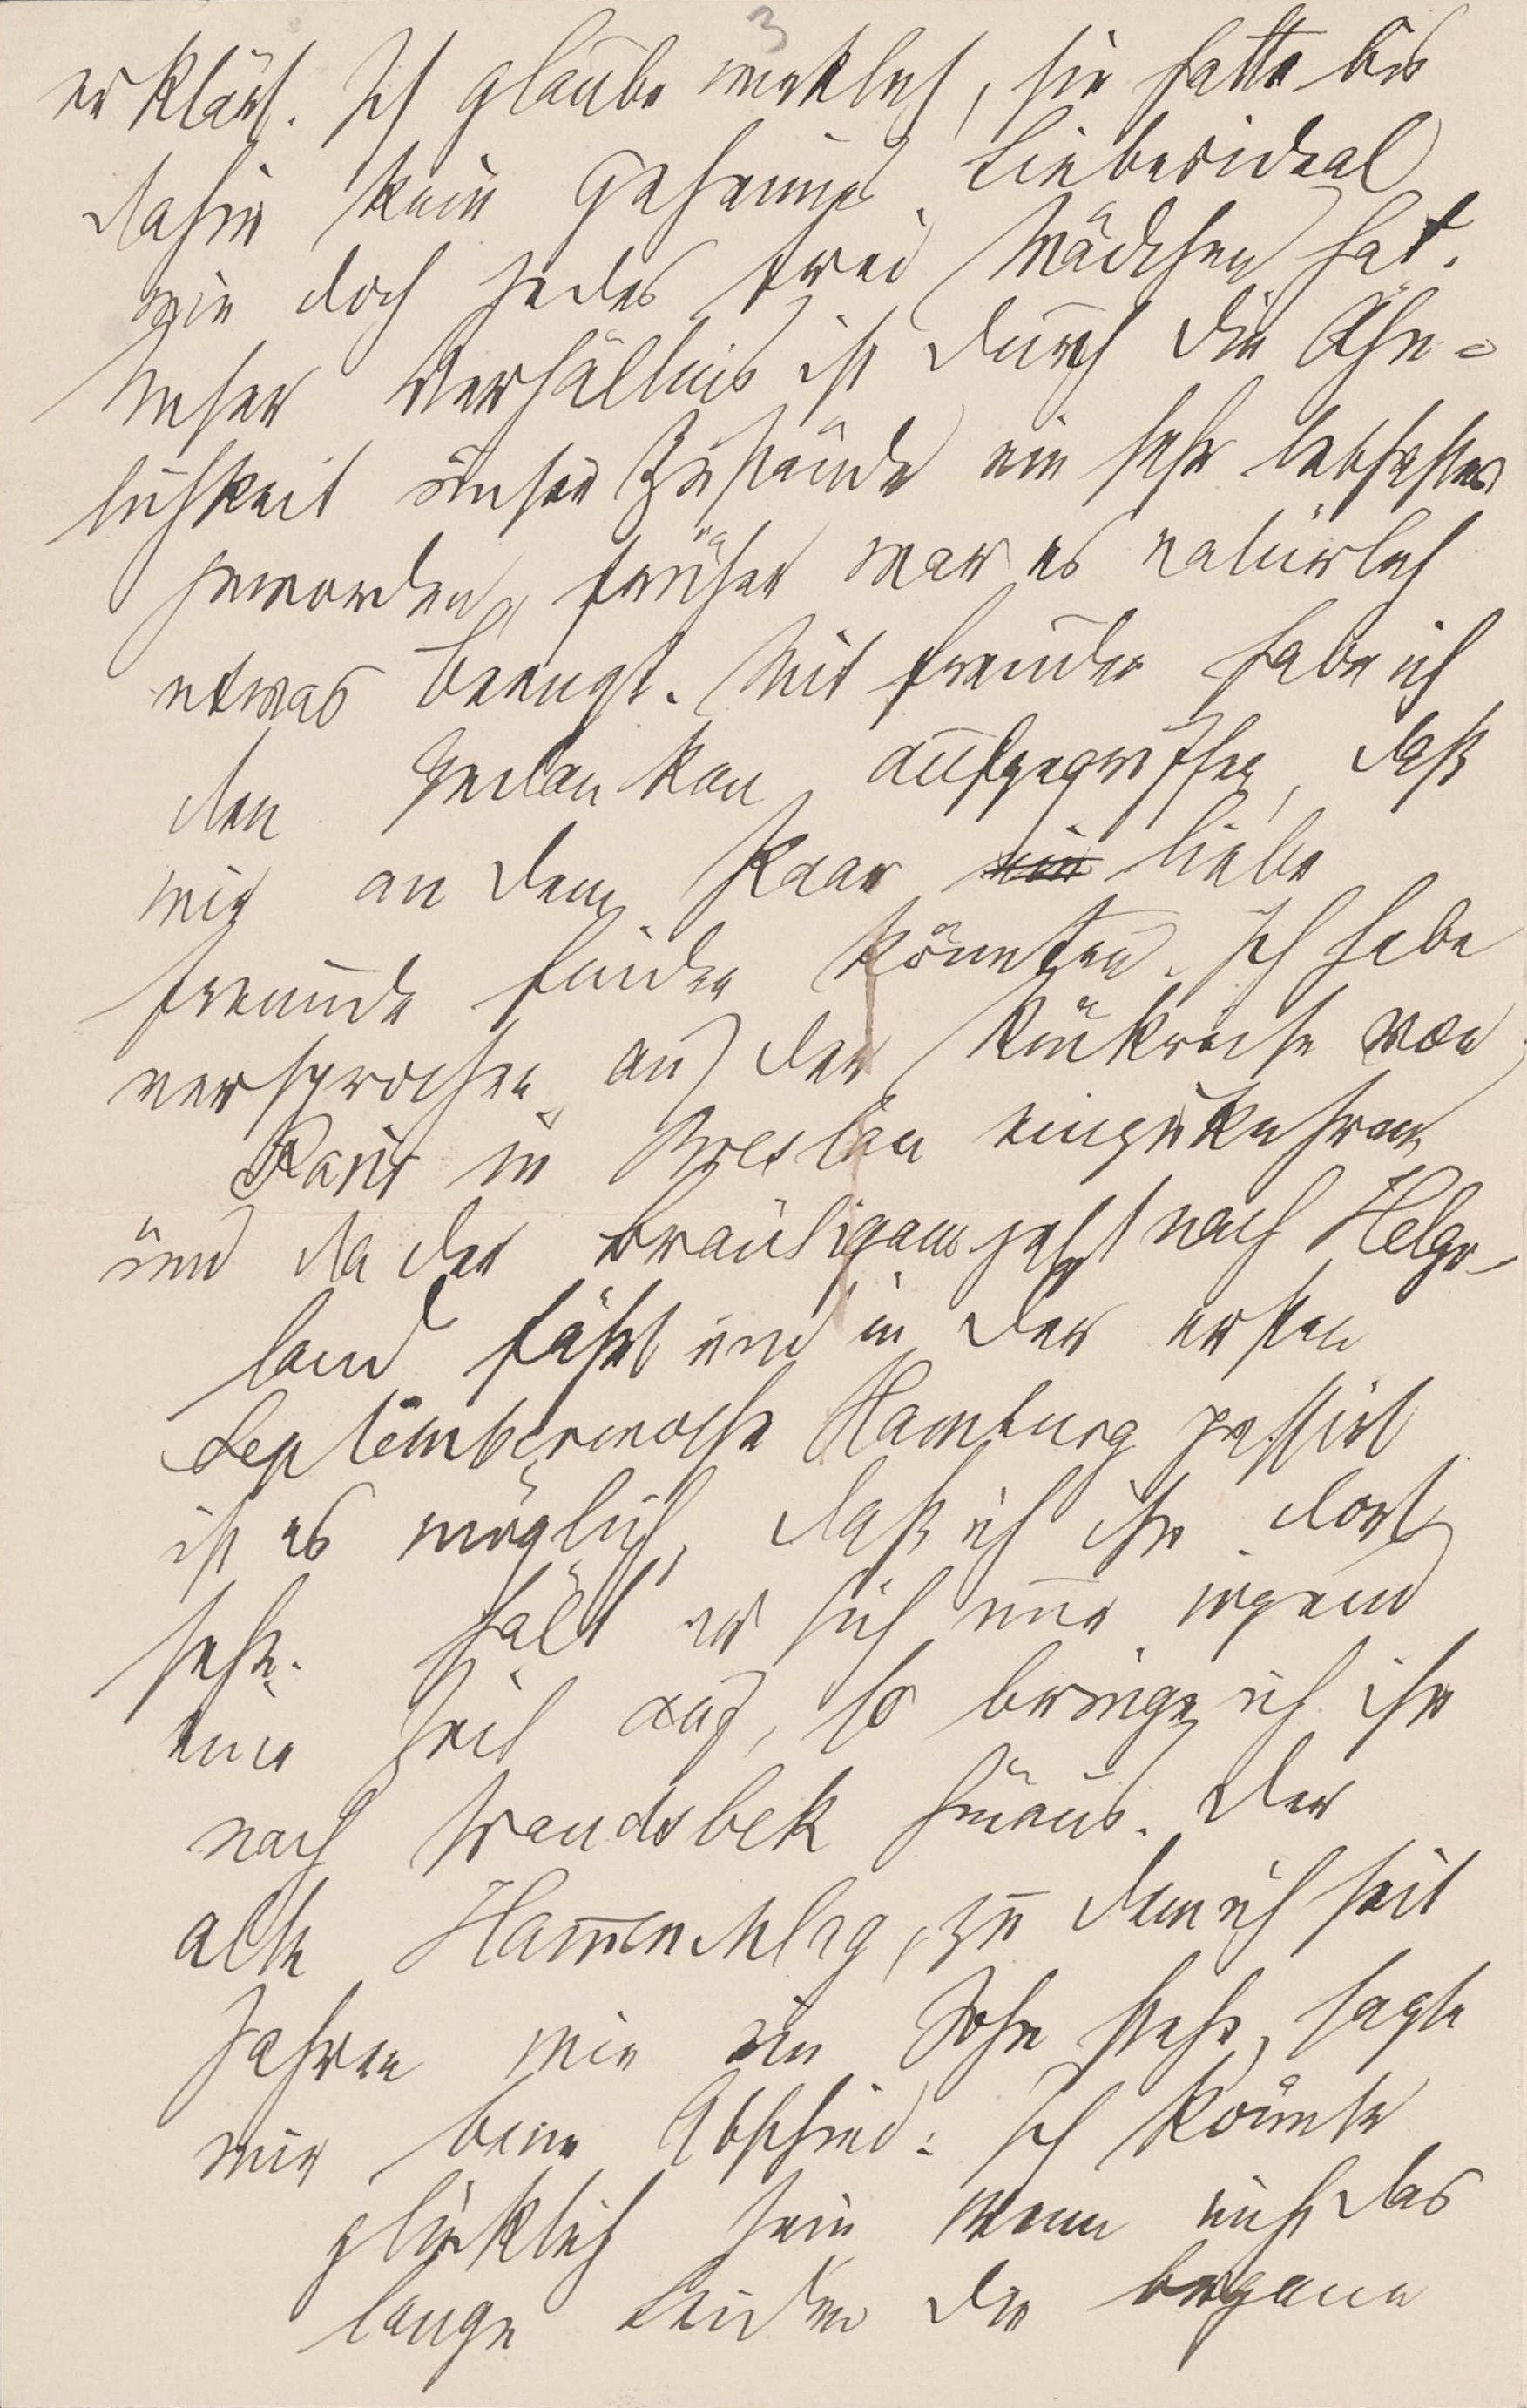 3
erklärt. Ich glaube wirklich, sie hatte bis
dahin kein geheimes Liebesideal
wie doch jedes frei Mädchen hat.
Unser Verhältnis ist durch die Ähn=
lichkeit unser Zustände ein sehr lebhaftes
geworden, früher war es natürlich
etwas beengt. Mit Freuden habe ich
den Gedanken aufgegriffen, daß
wir an dem Paar ein liebe
Freunde finden könnten. Ich habe
versprochen, auf der Rückreise von
Paris in Breslau einzukehren
und da der Bräutigam jetzt nach Helgo-
land fährt und in der ersten
Septemberwoche Hamburg passirt
ist es möglich, daß ich ihn dort
sehe. Hält er sich nur irgend
eine Zeit auf, so bringe ich ihn
nach Wandsbek hinaus. Der
alte Hammerschlag, zu dem ich seit
Jahren wie ein Sohn stehe, sagte
mir beim Abschied: Ich könnte
glücklich sein wenn nicht das
lange Leiden der